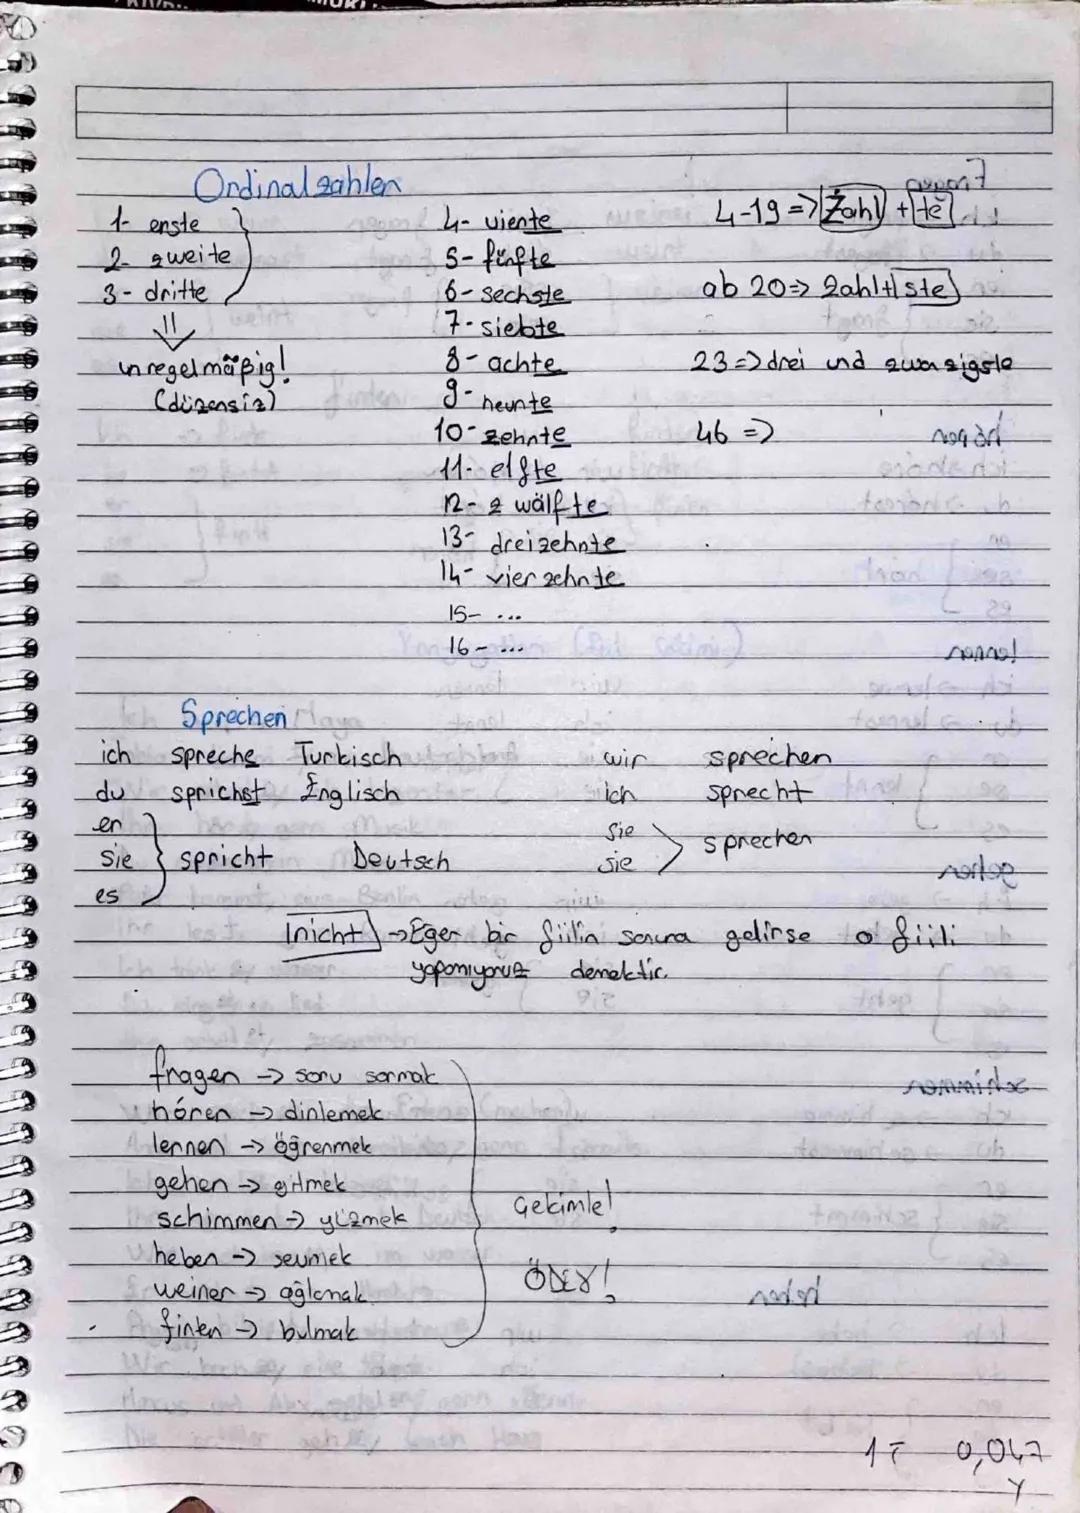 Ordinalzahlen
1- enste
2- zweite
3- dritte
unregelmäßig!
(düzensiz)
4- viente
5- fünfte
6- sechste
7- siebte
8- achte
9- neunte
10- zehnte
11- elfte
12- zwälfte
13- dreizehnte
14- vierzehnte
15- ...
16- ...
4-19 => Zahl + te
ab 20 => Zahl + ste
23 => drei und zwanzigste
46 =>
Sprechen
ich spreche Turkisch wir sprechen
du sprichst Englisch ich sprecht
er sie
sie spricht Deutsch sie sprechen
es
nicht → Eger bir fiilin sonuna gelirse o fiili
yapamıyoruz demektir.
fragen → soru sormak
hören → dinlemek
lernen → öğrenmek
gehen → gitmek
schimmen → yüzmek
heben → sevmek
weiner → ağlamak
finten → bulmak
Çekimle!
ÖDEV!
1 = 0,047